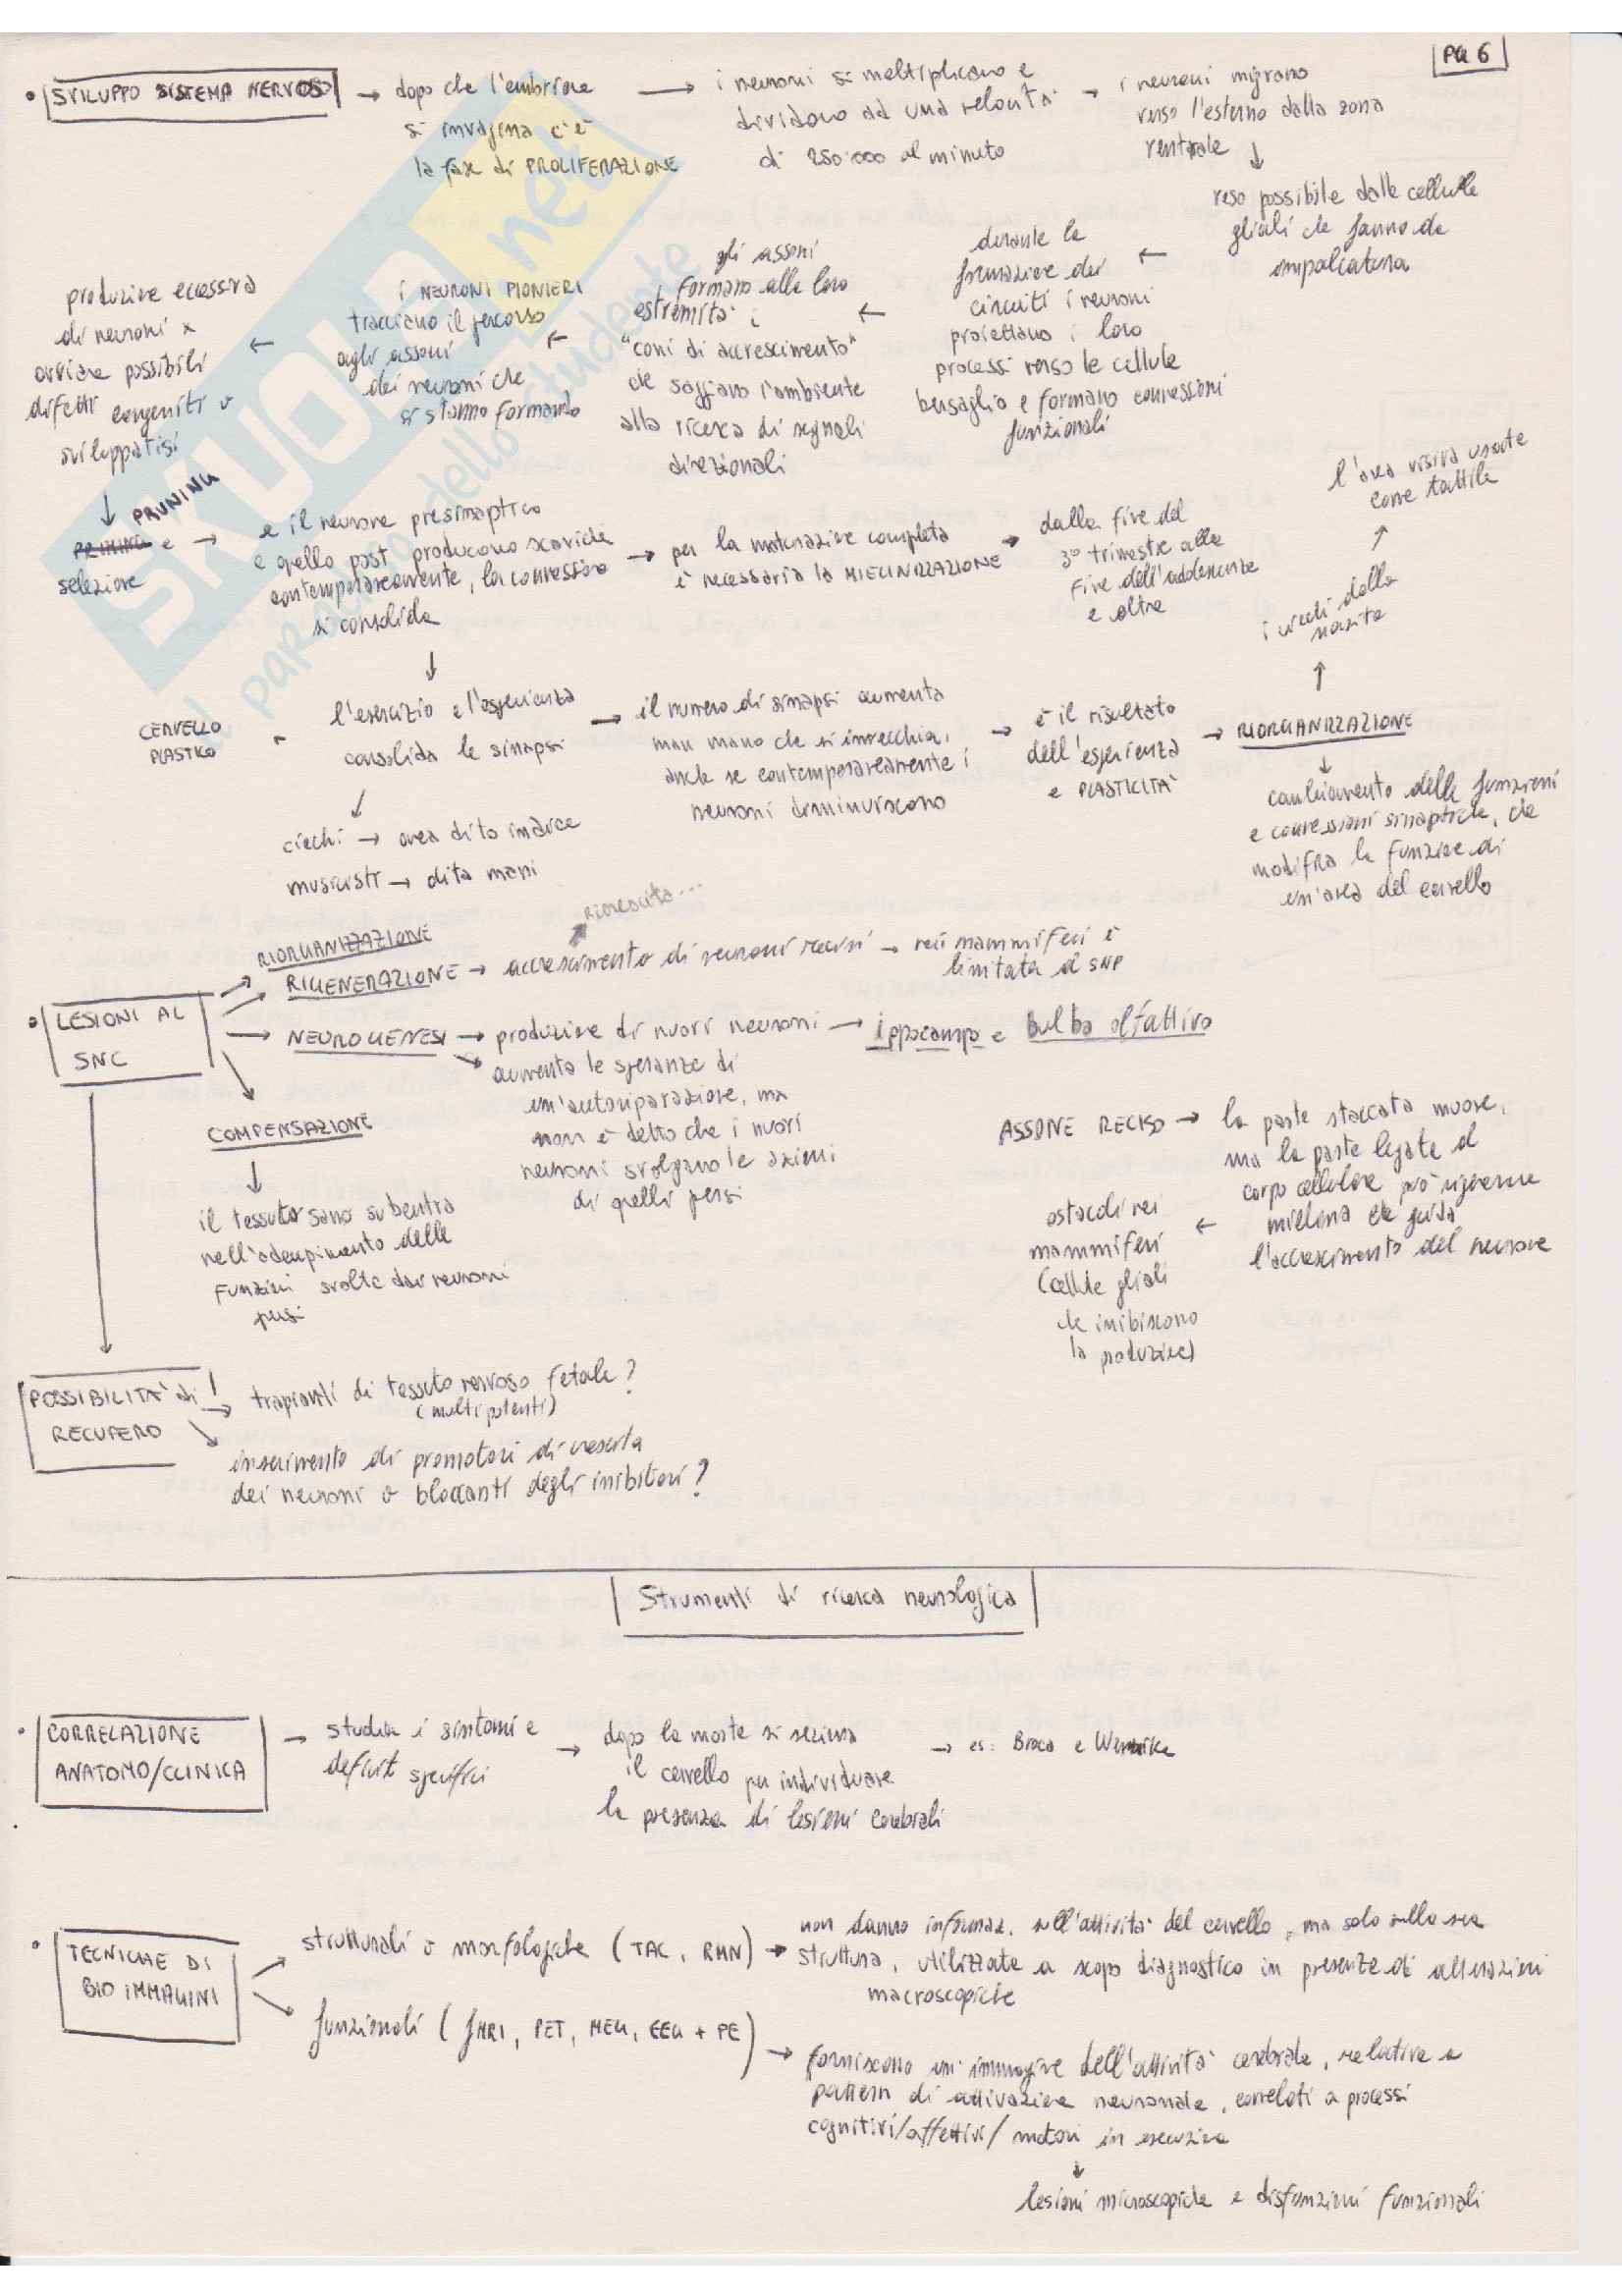 PG 6
• SVILUPPO SISTEMA NERVOSO → dopo che l'embrione
si invagina c'è
la fase di PROLIFERAZIONE
→ i neuroni si moltiplicano e
dividono ad una velocità
di 250.000 al minuto
→ i neuroni migrano
verso l'esterno dalla zona
ventrale
↓
reso possibile dalle cellule
gliali che fanno da
impalcatura
←
durante la
formazione dei
circuiti i neuroni
proiettano i loro
processi verso le cellule
bersaglio e formano connessioni
funzionali
←
gli assoni
formano alle loro
estremità i
"coni di accrescimento"
che saggiano l'ambiente
alla ricerca di segnali
direzionali
←
i NEURONI PIONIERI
tracciano il percorso
agli assoni
dei neuroni che
si stanno formando
←
produzione eccessiva
di neuroni x
ovviare possibili
difetti congeniti o
sviluppatisi
↓
PRUNING
e →
selezione
e il neurone presinaptico
e quello post producono scariche
contemporaneamente, la connessione
si consolida
→ per la maturazione completa
è necessaria la MIELINIZZAZIONE
→ dalla fine del
3° trimestre alla
fine dell'adolescenza
e oltre
↓
l'esercizio e l'esperienza
consolida le sinapsi
←
CERVELLO
PLASTICO
↓
ciechi → area dito indice
musicisti → dita mani
→ il numero di sinapsi aumenta
man mano che si invecchia,
anche se contemporaneamente i
neuroni diminuiscono
→ è il risultato
dell'esperienza
e PLASTICITÀ
→ RIORGANIZZAZIONE
↓
cambiamento delle funzioni
e connessioni sinaptiche, che
modifica la funzione di
un'area del cervello
↑
i ciechi dalla
nascita
↑
l'area visiva usata
come tattile
• LESIONI AL
SNC
→ RIORGANIZZAZIONE
→ RIGENERAZIONE → accrescimento di neuroni recisi → nei mammiferi è
limitata al SNP
RICRESCITA...
→ NEUROGENESI → produzione di nuovi neuroni → ippocampo e bulbo olfattivo
→ aumenta le speranze di
un'autoriparazione, ma
non è detto che i nuovi
neuroni svolgano le azioni
di quelli persi
COMPENSAZIONE
↓
il tessuto sano subentra
nell'adempimento delle
funzioni svolte dai neuroni
persi
ASSONE RECISO → la parte staccata muore,
ma la parte legata al
corpo cellulare può rigenerare
mielina che guida
l'accrescimento del neurone
←
ostacoli nei
mammiferi
(cellule gliali
che inibiscono
la produzione)
POSSIBILITÀ di
RECUPERO
→ trapianti di tessuto nervoso fetale?
(multipotenti)
→ inserimento di promotori di crescita
dei neuroni o bloccanti degli inibitori?
Strumenti di ricerca neurologica
• CORRELAZIONE
ANATOMO/CLINICA
→ studia i sintomi e
deficit specifici
→ dopo la morte si seziona
il cervello per individuare
la presenza di lesioni cerebrali
→ es: Broca e Wernike
• TECNICHE DI
BIO IMMAGINI
→ strutturali o morfologiche (TAC, RMN) → non danno informaz. sull'attività del cervello, ma solo sulla sua
struttura, utilizzate a scopo diagnostico in presenza di alterazioni
macroscopiche
→ funzionali (fMRI, PET, MEG, EEG + PE)
→ forniscono un'immagine dell'attività cerebrale, relativa a
pattern di attivazione neuronale, correlati a processi
cognitivi/affettivi/motori in esecuzione
↓
lesioni microscopiche e disfunzioni funzionali
SKUOLA.net
il paradiso dello studente